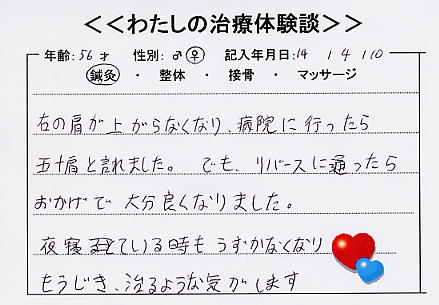 <<わたしの治療体験談>>
年齢:56才 性別:♂♀ 記入年月日:14 / 4 / 10
鍼灸 ・ 整体 ・ 接骨 ・ マッサージ
右の肩が上がらなくなり、病院に行ったら
五十肩と言われました。でも、リバースに通ったら
おかげで大分良くなりました。
夜寝ている時もうずかなくなり
もうじき、治るような気がします